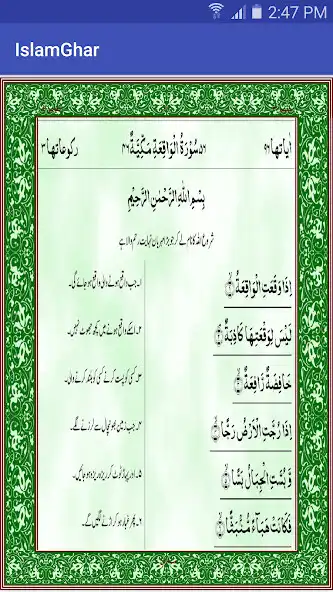 2:47 PM
IslamGhar
اٰیاتها ۹۶ ۵۶ سُوْرَةُ الْوَاقِعَةِ مَكِّیَّةٌ ۴۶ ركوعاتها ۳
بِسْمِ اللّٰهِ الرَّحْمٰنِ الرَّحِیْمِ
شروع اللہ کا نام لے کر جو بڑا مہربان نہایت رحم والا ہے
اِذَا وَقَعَتِ الْوَاقِعَةُ ۙ۝۱
۱۔ جب واقع ہونے والی واقع ہو جائے گی۔
لَیْسَ لِوَقْعَتِهَا كَاذِبَةٌ ۘ۝۲
۲۔ اسکے واقع ہونے میں کچھ جھوٹ نہیں۔
خَافِضَةٌ رَّافِعَةٌ ۙ۝۳
۳۔ کسی کو پست کرے کسی کو بلند کرنے والی۔
اِذَا رُجَّتِ الْاَرْضُ رَجًّا ۙ۝۴
۴۔ جب زمین بھونچال سے لرزنے لگے۔
وَّ بُسَّتِ الْجِبَالُ بَسًّا ۙ۝۵
۵۔ اور پہاڑ ٹوٹ کر ریزہ ریزہ ہو جائیں۔
فَكَانَتْ هَبَآءً مُّنْۢبَثًّا ۙ۝۶
۶۔ پھر غبار ہو کر اڑنے لگیں گے۔